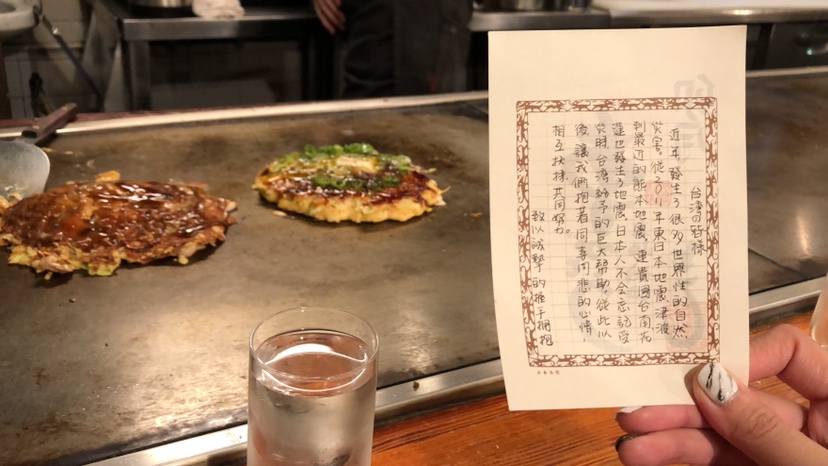 台湾の皆様
近年發生了很多世界性的自然
災害,從2011年東日本地震,津波
到最近的熊本地震,連貴國台南,花
蓮也發生了地震,日本人不会忘記受
災時台湾給予的巨大幫助,從此以
後,讓我們抱着同喜同悲的心情,
相互扶持共同努力。
致以誠摯的握手擁抱